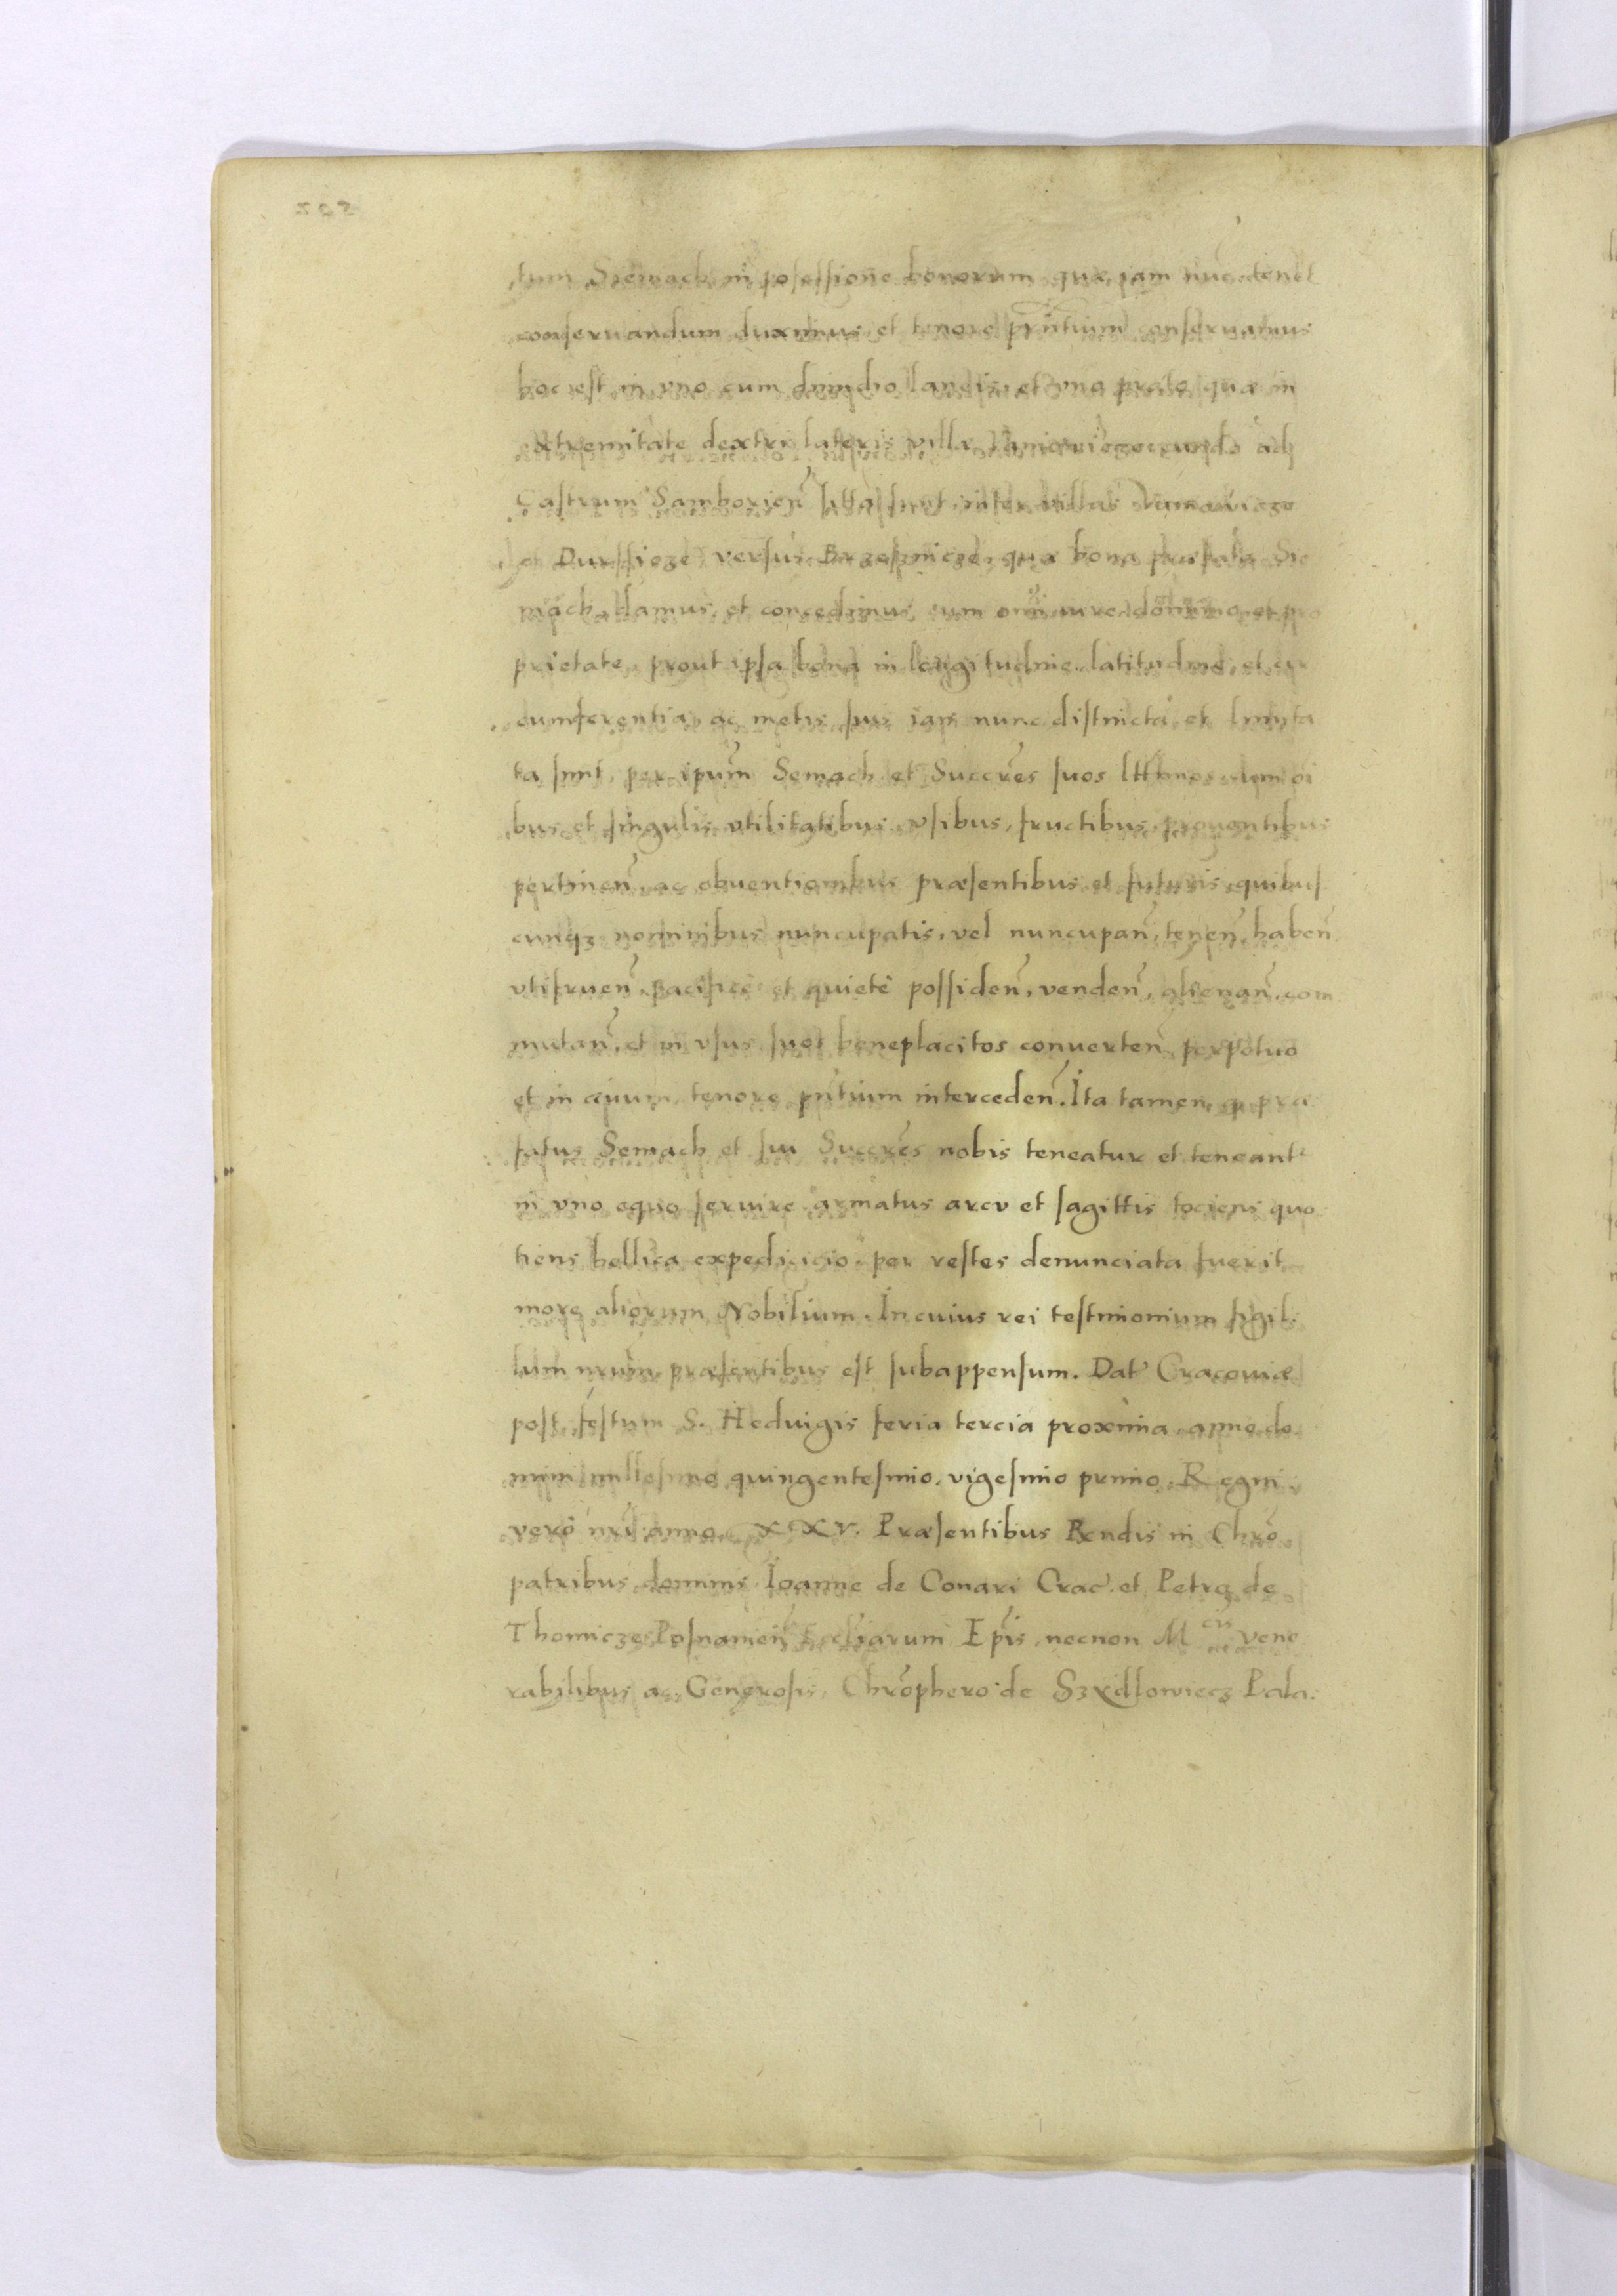 tum Siemach in possessione bonorum quæ iam nuc tenet
conseruandum duximus, et tenore pñtium conseruamus
hoc est in vno cum dimidio laneis, et vno prato quæ in
extremitate dextri lateris villæ eundo ad
Castrum Samborieñ sita sunt inter villas
et Durssicze versus Brzesznicze, quæ bona præfato Sie
mach damus, et concedimus, cum omni iure dominio et pro
prietate prout ipsa bona in longitudine latitudine, et cir
cumferentia ac metis suis iam nunc distincta et limita
ta sunt, per ipsum Semach et Succres suos lttimos cum oi
bus et singulis vtilitatibus, vsibus, fructibus, prouentibus
pertineñ ac obuentionibus præsentibus et futuris quibus
cunqz nominibus nuncupatis, vel nuncupañ, teneñ, habeñ
vtifrueñ pacifice et quietè possideñ, vendeñ, alienañ, com
mutañ, et in vsus suos beneplacitos conuerteñ perpetuo
et in æuum, tenore pñtium intercedeñ. Ita tamen, q præ
fatus Semach et sui Succrẽs nobis teneatur et teneantr
in vno equo seruire armatus arcu et sagittis tociens quo
tiens bellica expedicicio per restes denunciata fuerit
more aliorum Nobilium. In cuius rei testimonium sigil
lum nrum præsentibus est subappensum. Dat Cracouiæ
post festum S. Heduigis feria tercia proxima, anno do
mini millesimo quingentesimo, vigesimo primo. Regni
verò nrĩ anno XXV. Præsentibus Rendis in Chro
patribus dominis Ioanne de Conari Crac. et Petro de
Thomicze Posnanieñ Eccliarum Epĩs necnon Mcis vene
rabilibus ac Generosis, Chrophero de Szydlowiecz Pala.